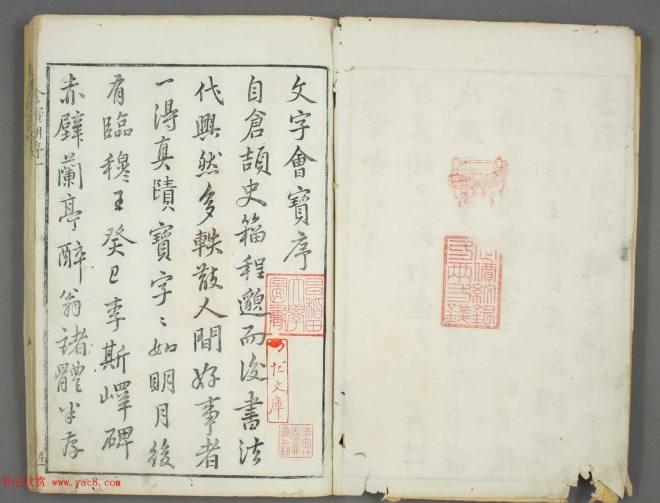 文字會寶序
自倉頡史籀程邈而後書法
代興然多軼散人間好事者
一得真蹟寶字〻如明月後
有臨穆王癸巳李斯嶧碑
赤壁蘭亭醉翁諸體半存
早稻田大學圖書
文庫
書法欣赏 www.yac8.com